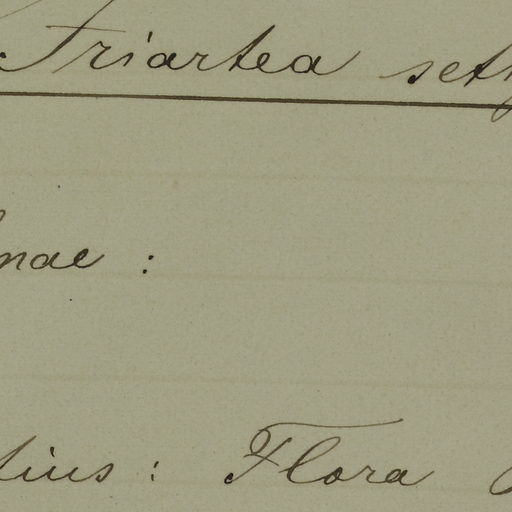 Iriartea set
mae :
tius : Flora